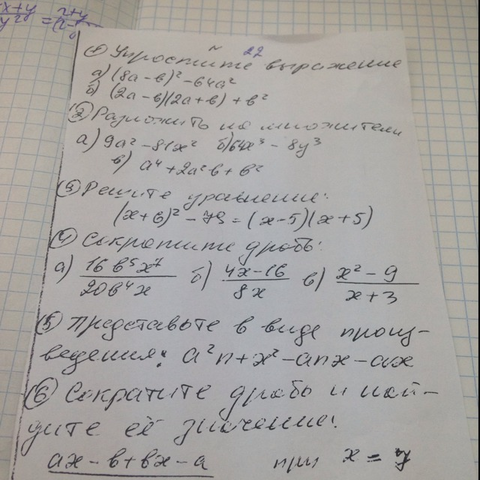 x+y = x+y
y²
№ 22
① Упростите выражение
а) (8а-в)² - 64а²
б) (2а-в)(2а+в) + в²
② Разложить на множители
а) 9а² - 81х² б) 64х³ - 8у³
в) а⁴ + 2а²в + в²
③ Решите уравнение:
(х+6)² - 79 = (х-5)(х+5)
④ Сократите дробь:
а) 16в⁵х⁷ / 20в⁴х б) 4х-16 / 8х в) х² - 9 / х+3
⑤ Представьте в виде произ-
ведения: а²n + х² - anx - ах
⑥ Сократите дробь и най-
дите её значение:
ах - в + вх - а при х =